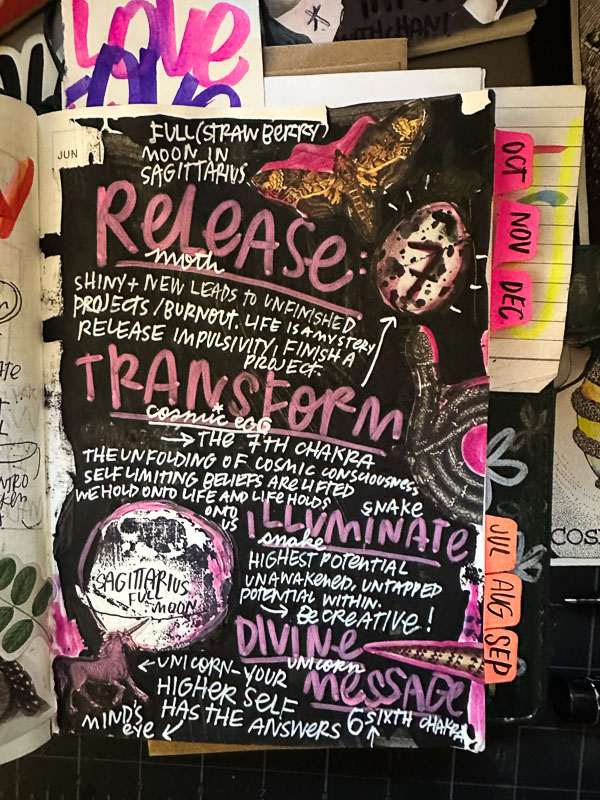 LOVE
JUN
FULL (STRAWBERRY)
MOON IN
SAGITTARIUS
RELEASE:
moth
7
SHINY + NEW LEADS TO UNFINISHED
PROJECTS / BURNOUT. LIFE IS A MYSTERY
RELEASE IMPULSIVITY, FINISH A
PROJECT.
TRANSFORM
cosmic egg
→ THE 7TH CHAKRA
THE UNFOLDING OF COSMIC CONCIOUSNESS
SELF LIMITING BELIEFS ARE LIFTED
WE HOLD ONTO LIFE AND LIFE HOLDS
ONTO
US
SNAKE
ILLUMINATE
snake
HIGHEST POTENTIAL
UNAWAKENED, UNTAPPED
POTENTIAL WITHIN.
→ BE CREATIVE!
SAGITTARIUS
FULL
MOON
DIVINE
UNICORN
MESSAGE
← UNICORN—YOUR
HIGHER SELF
HAS THE ANSWERS
MIND'S
eye
6 SIXTH CHAKRA
OCT
NOV
DEC
JUL
AUG
SEP